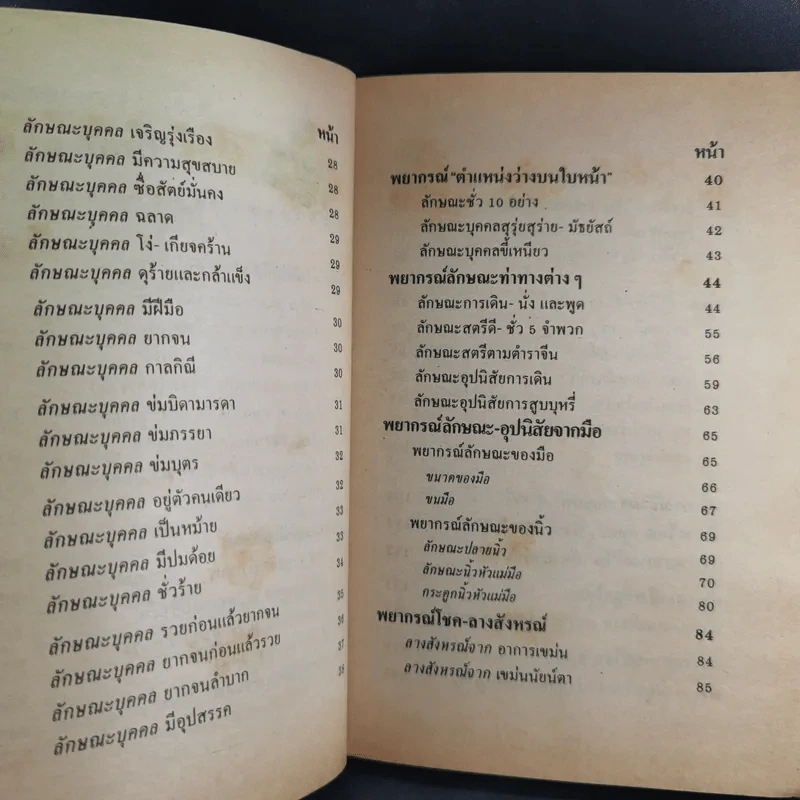 หน้า
ลักษณะบุคคล เจริญรุ่งเรือง 28
ลักษณะบุคคล มีความสุขสบาย 28
ลักษณะบุคคล ซื่อสัตย์มั่นคง 28
ลักษณะบุคคล ฉลาด 29
ลักษณะบุคคล โง่- เกียจคร้าน 29
ลักษณะบุคคล ดุร้ายและกล้าแข็ง 29
ลักษณะบุคคล มีฝีมือ 30
ลักษณะบุคคล ยากจน 30
ลักษณะบุคคล กาลกิณี 30
ลักษณะบุคคล ข่มบิดามารดา 31
ลักษณะบุคคล ข่มภรรยา 31
ลักษณะบุคคล ข่มบุตร 32
ลักษณะบุคคล อยู่ตัวคนเดียว 32
ลักษณะบุคคล เป็นหม้าย 33
ลักษณะบุคคล มีปมด้อย 33
ลักษณะบุคคล ชั่วร้าย 34
ลักษณะบุคคล รวยก่อนแล้วยากจน 35
ลักษณะบุคคล ยากจนก่อนแล้วรวย 36
ลักษณะบุคคล ยากจนลำบาก 37
ลักษณะบุคคล มีอุปสรรค 38
หน้า
พยากรณ์“ตำแหน่งว่างบนใบหน้า” 40
ลักษณะชั่ว 10 อย่าง 41
ลักษณะบุคคลสุรุ่ยสุร่าย- มัธยัสถ์ 42
ลักษณะบุคคลขี้เหนียว 43
พยากรณ์ลักษณะท่าทางต่าง ๆ 44
ลักษณะการเดิน- นั่ง และพูด 44
ลักษณะสตรีดี- ชั่ว 5 จำพวก 55
ลักษณะสตรีตามตำราจีน 56
ลักษณะอุปนิสัยการเดิน 59
ลักษณะอุปนิสัยการสูบบุหรี่ 63
พยากรณ์ลักษณะ-อุปนิสัยจากมือ 65
พยากรณ์ลักษณะของมือ 65
ขนาดของมือ 66
ขนมือ 67
พยากรณ์ลักษณะของนิ้ว 69
ลักษณะปลายนิ้ว 69
ลักษณะนิ้วหัวแม่มือ 70
กระดูกนิ้วหัวแม่มือ 80
พยากรณ์โชค-ลางสังหรณ์ 84
ลางสังหรณ์จาก อาการเขม่น 84
ลางสังหรณ์จาก เขม่นนัยน์ตา 85